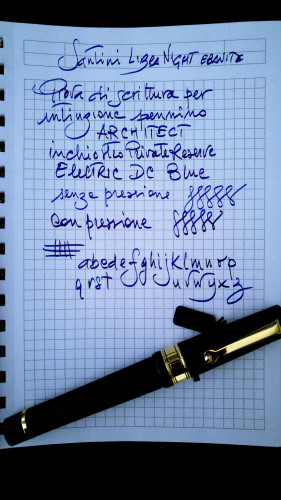 Santini Liber Night ebanite
Prova di scrittura per
intinzione pennino
ARCHITECT
inchiostro Private Reserve
Electric DC Blue
senza pressione
con pressione
abcdefghijklmnop
qrst uvwyxz